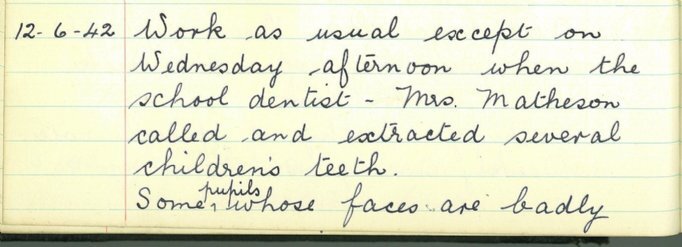 12-6-42 Work as usual except on
Wednesday afternoon when the
school dentist - Mrs. Matheson
called and extracted several
children's teeth.
Some pupils whose faces are badly